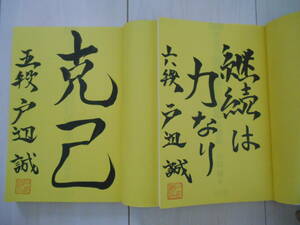 継続は
力なり
六段 戸辺 誠
克己
五段 戸辺 誠